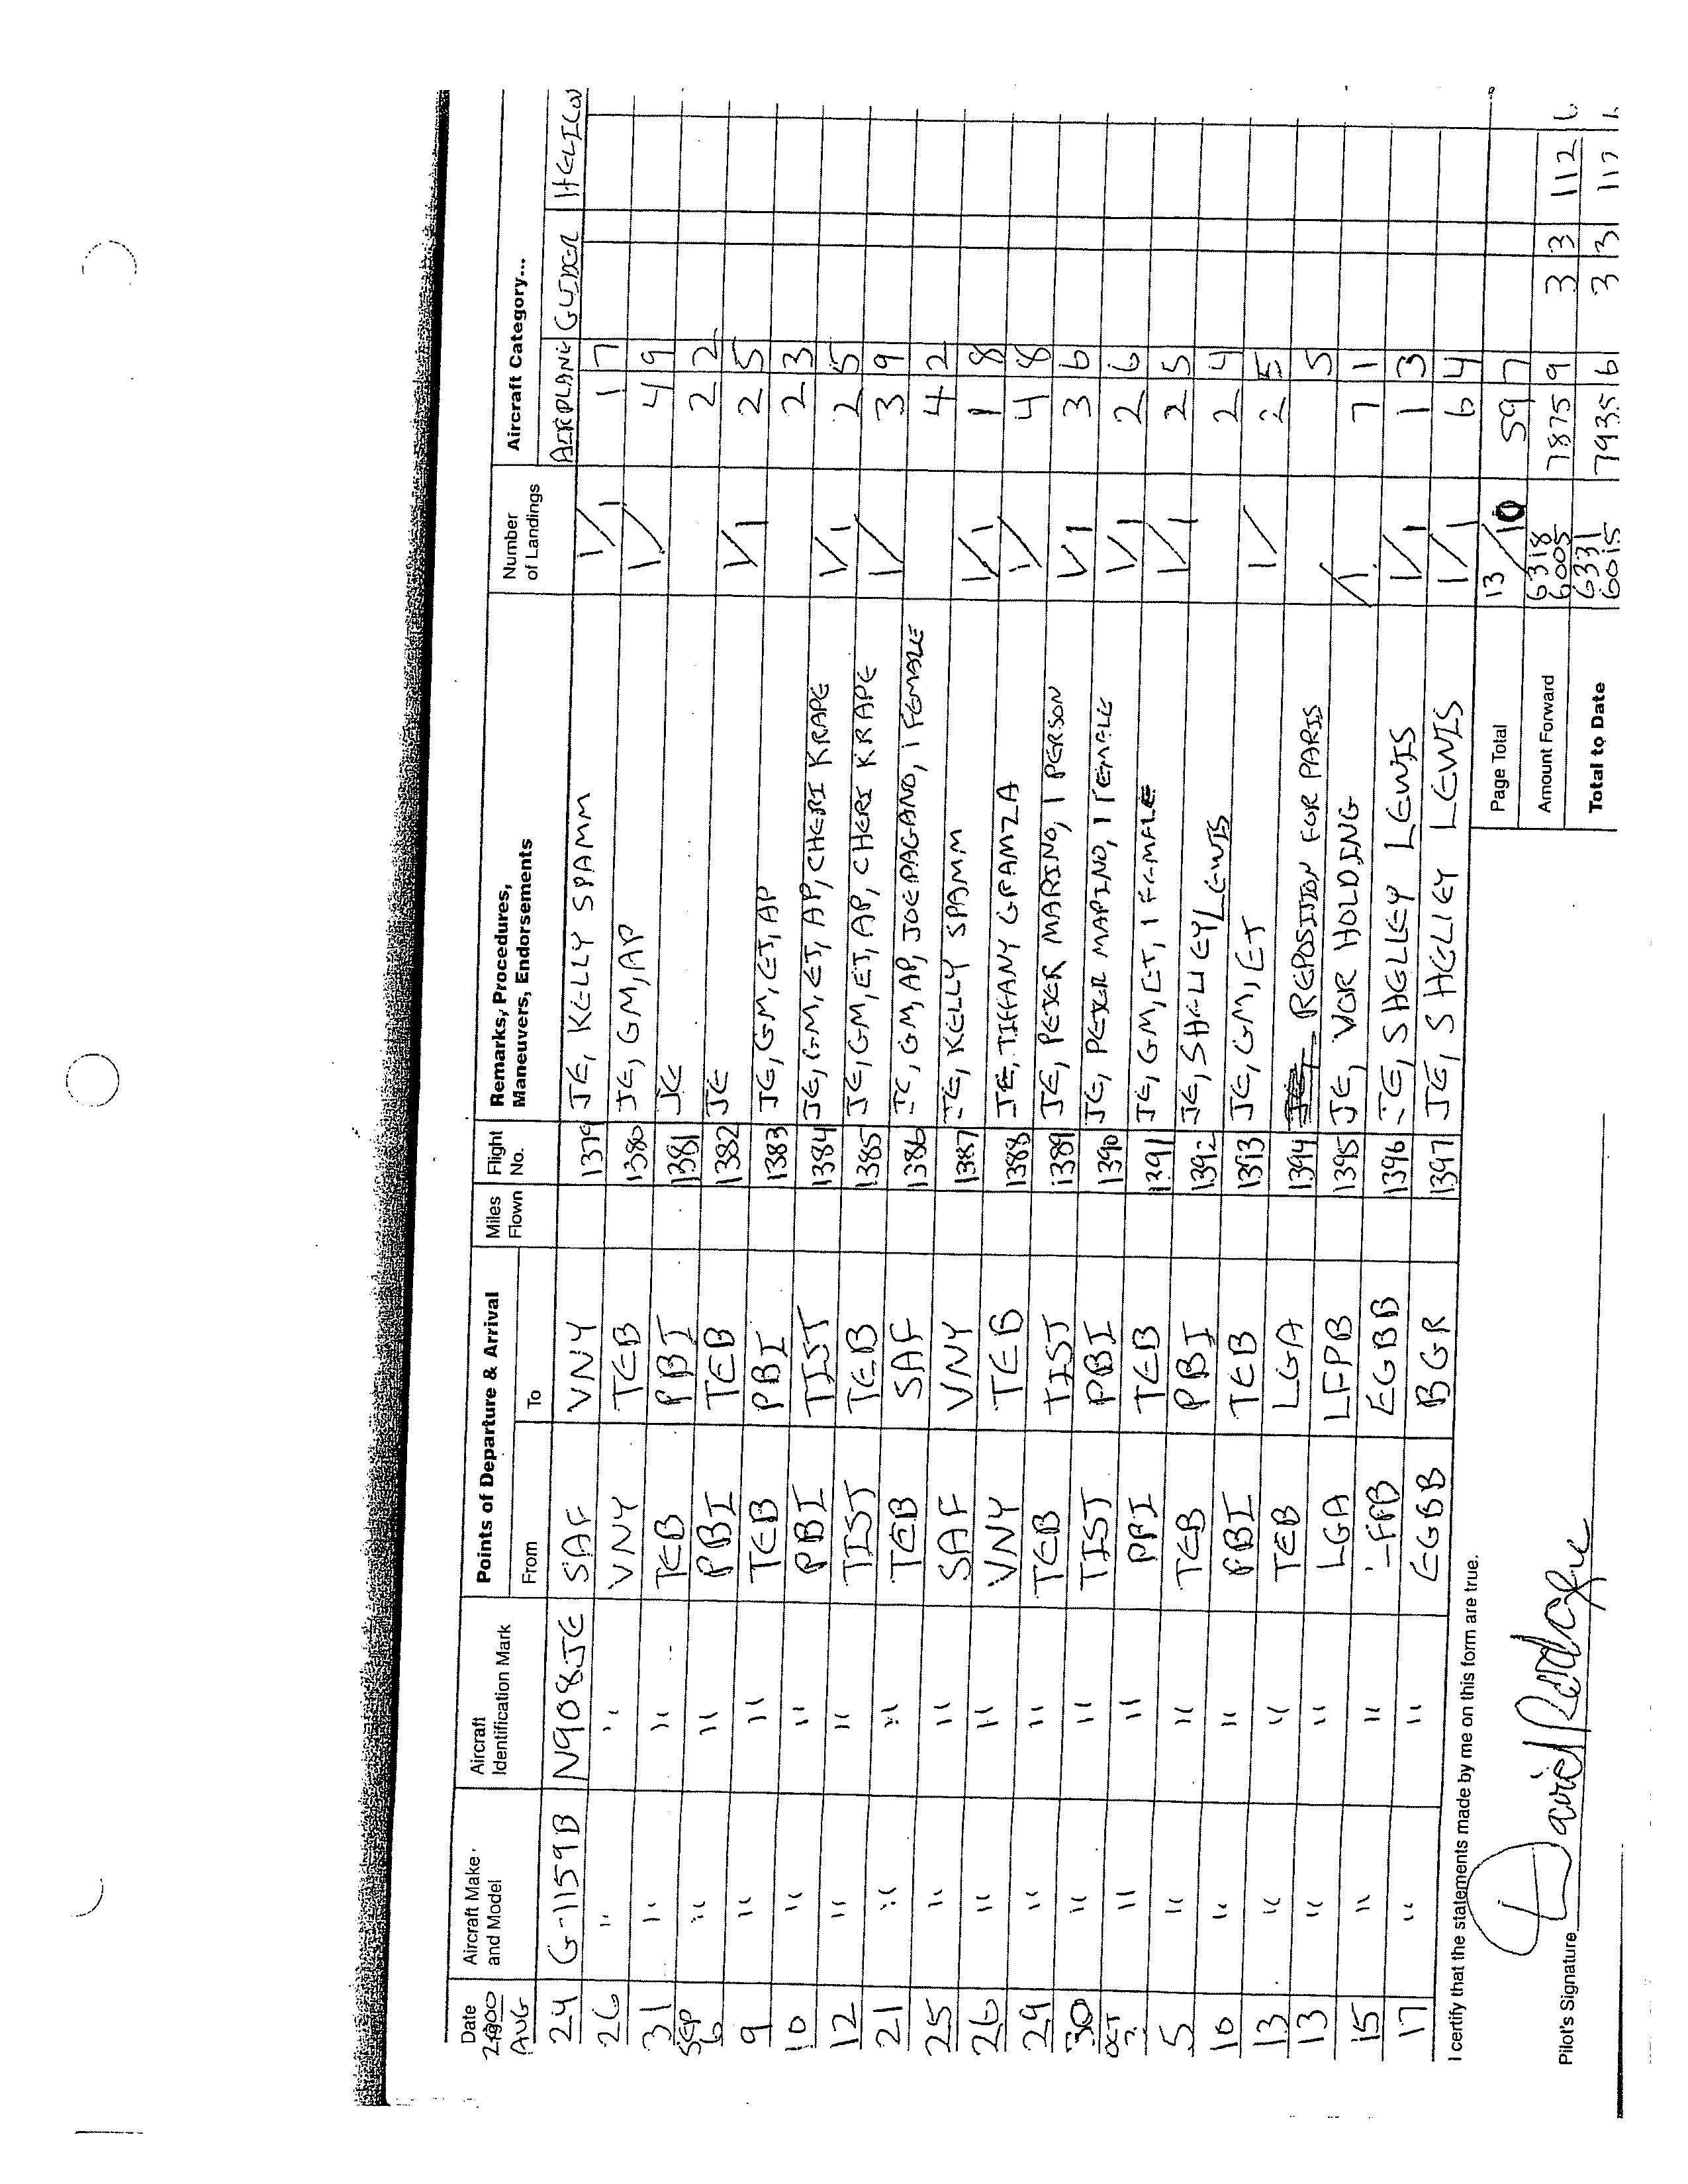 Date 2000 Aircraft Make and Model Aircraft Identification Mark Points of Departure & Arrival Miles Flown Flight No. Remarks, Procedures, Maneuvers, Endorsements Number of Landings Aircraft Category...
AUG From To AIRPLANE GLIDER HELICO
24 G-1159B N908JE SAF VNY 1379 JE, KELLY SPAMM 1/1 1 7
26 " " VNY TEB 1380 JE, GM, AP 1/ 4 9
31 " " TEB PBI 1381 JE 2 2
SEP 6 " " PBI TEB 1382 JE 1/1 2 5
9 " " TEB PBI 1383 JE, GM, ET, AP 2 3
10 " " PBI TIST 1384 JE, GM, ET, AP, CHERI KRAPE 1/1 2 5
12 " " TIST TEB 1385 JE, GM, ET, AP, CHERI KRAPE 1/ 3 9
21 " " TEB SAF 1386 JE, GM, AP, JOE PAGANO, 1 FEMALE 4 2
25 " " SAF VNY 1387 JE, KELLY SPAMM 1/1 1 8
26 " " VNY TEB 1388 JE, TIFFANY GRAMZA 1/ 4 8
29 " " TEB TIST 1389 JE, PETER MARINO, 1 PERSON 1/1 3 6
30 " " TIST PBI 1390 JE, PETER MARINO, 1 FEMALE 1/1 2 6
OCT " " PBI TEB 1391 JE, GM, ET, 1 FEMALE 1/1 2 5
5 " " TEB PBI 1392 JE, SHELLEY LEWIS 2 4
10 " " PBI TEB 1393 JE, GM, ET 1/ 2 5
13 " " TEB LGA 1394 REPOSITION FOR PARIS 5
13 " " LGA LFPB 1395 JE, VOR HOLDING /1 7 1
15 " " EGBB 1396 JE, SHELLEY LEWIS 1/1 1 3
17 " " EGBB BGR 1397 JE, SHELLEY LEWIS 1/1 6 4
I certify that the statements made by me on this form are true. Page Total 13/10 59 7
Amount Forward 6318 6005 7875 9 3 3 112
Pilot's Signature David Rodgers Total to Date 6331 6015 7935 6 3 3